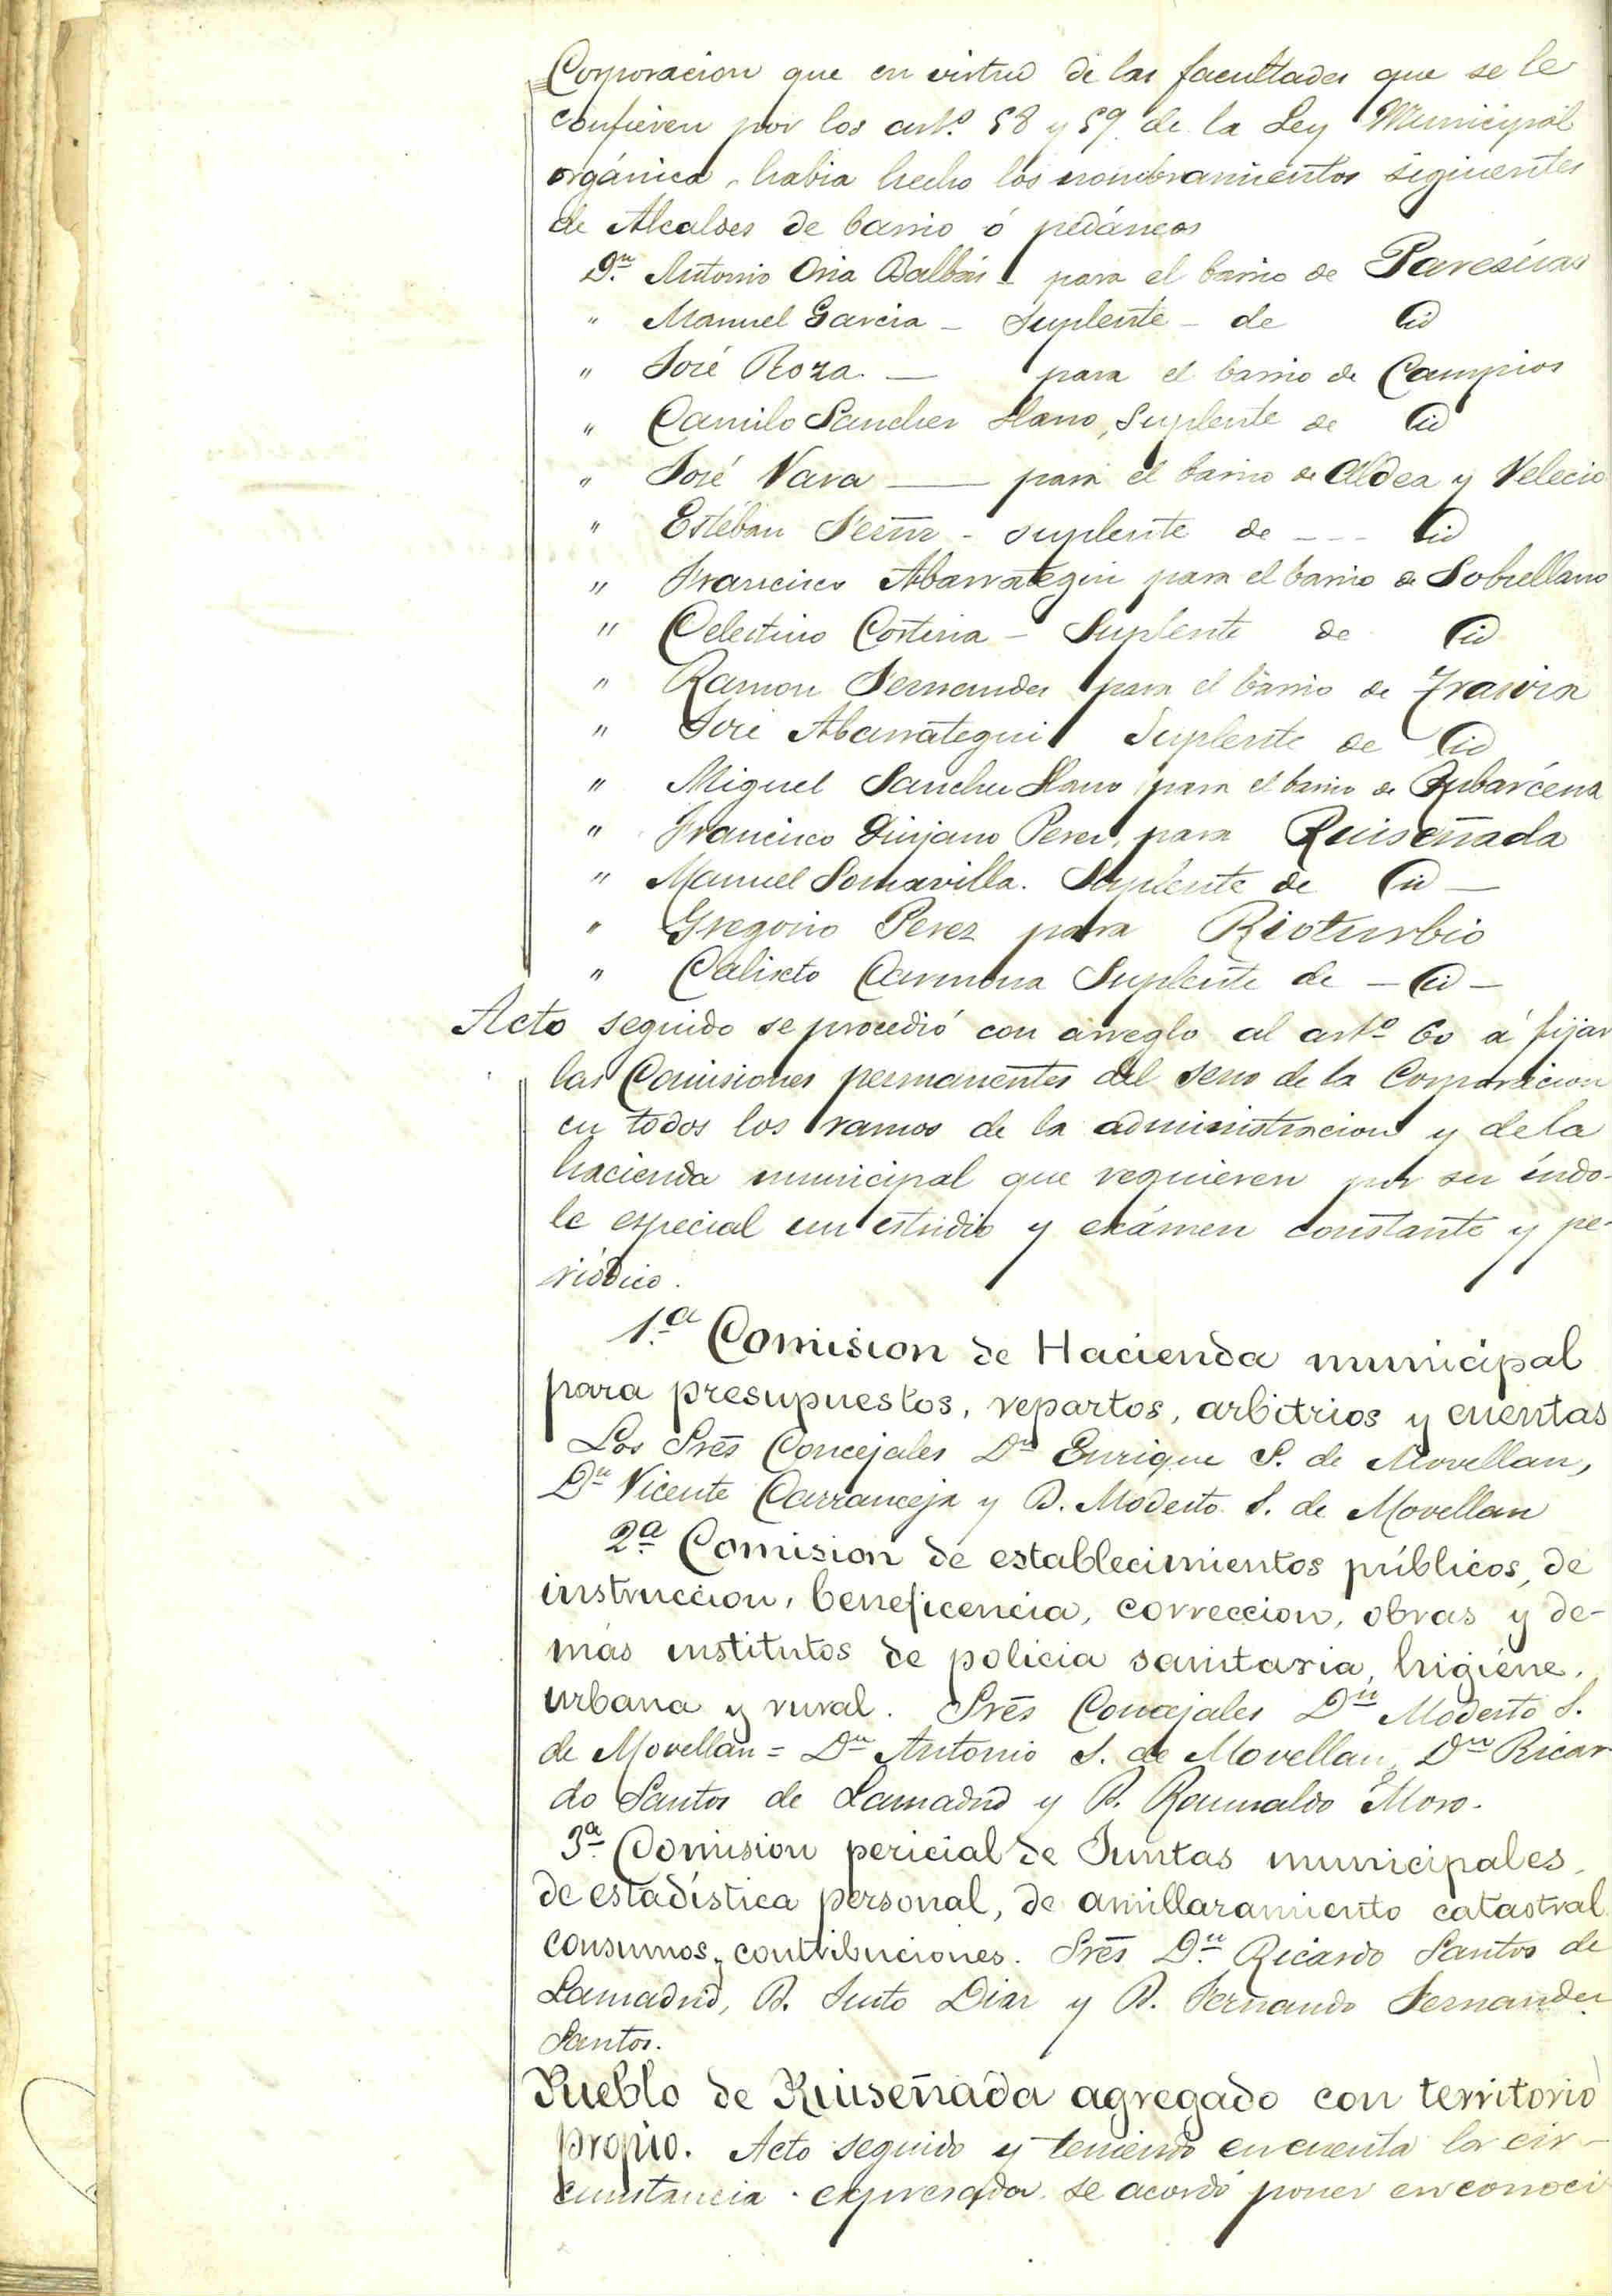 Corporacion que en virtud de las facultades que se le
confieren por los art.º 58 y 59 de la Ley Municipal
orgánica, habia hecho los nombramientos siguientes
de Alcaldes de barrio ó pedáneos
D.n Antonio Oria Balbás - para el barrio de
" Manuel Garcia - Suplente - de id
" José Roza. — para el barrio de Campios
" Camilo Sanchez Llano, Suplente de id
" José Vara — para el barrio de Aldea y Velecio
" Estéban suplente de - - - id
" Francisco Abarrategui para el barrio de Sobrellano
" Celestino Cortina - Suplente de id
" Ramon Fernandez para el barrio de
" José Abarrategui Suplente de id
" Miguel Sanchez Llano para el barrio de Rubárcena
" Francisco Quijano Perez, para Ruiseñada
" Manuel Somavilla. Suplente de id —
" Gregorio Perez para Rioturbio
" Calisto Carmona Suplente de — id —
Acto seguido se procedió con arreglo al artº 60 á fijar
las Comisiones permanentes del seno de la Corporacion
en todos los ramos de la administracion y de la
hacienda municipal que requieren por su índo-
le especial un estudio y exámen constante y pe-
riódico.
1.a Comision de Hacienda municipal
para presupuestos, repartos, arbitrios y cuentas
Los Srẽs Concejales Dn Enrique S. de Movellan,
Dn Vicente Carranceja y D. Modesto S. de Movellan
2.a Comision de establecimientos públicos, de
instruccion, beneficencia, correccion, obras y de-
más institutos de policia sanitaria, higiéne,
urbana y rural. Srẽs Concejales Dn Modesto S.
de Movellan = Dn Antonio S. de Movellan, Dn Ricar
do Santos de Lamadrid y D. Romualdo Moro.
3.a Comision pericial de Juntas municipales,
de estadística personal, de amillaramiento catastral
consumos y contribuciones. Srẽs D.n Ricardo Santos de
Lamadrid, D. Justo Diaz y D. Fernando Fernandez
Santos.
Pueblo de Ruiseñada agregado con territorio
propio. Acto seguido y teniendo en cuenta la cir-
cunstancia expresada se acordó poner en conoci